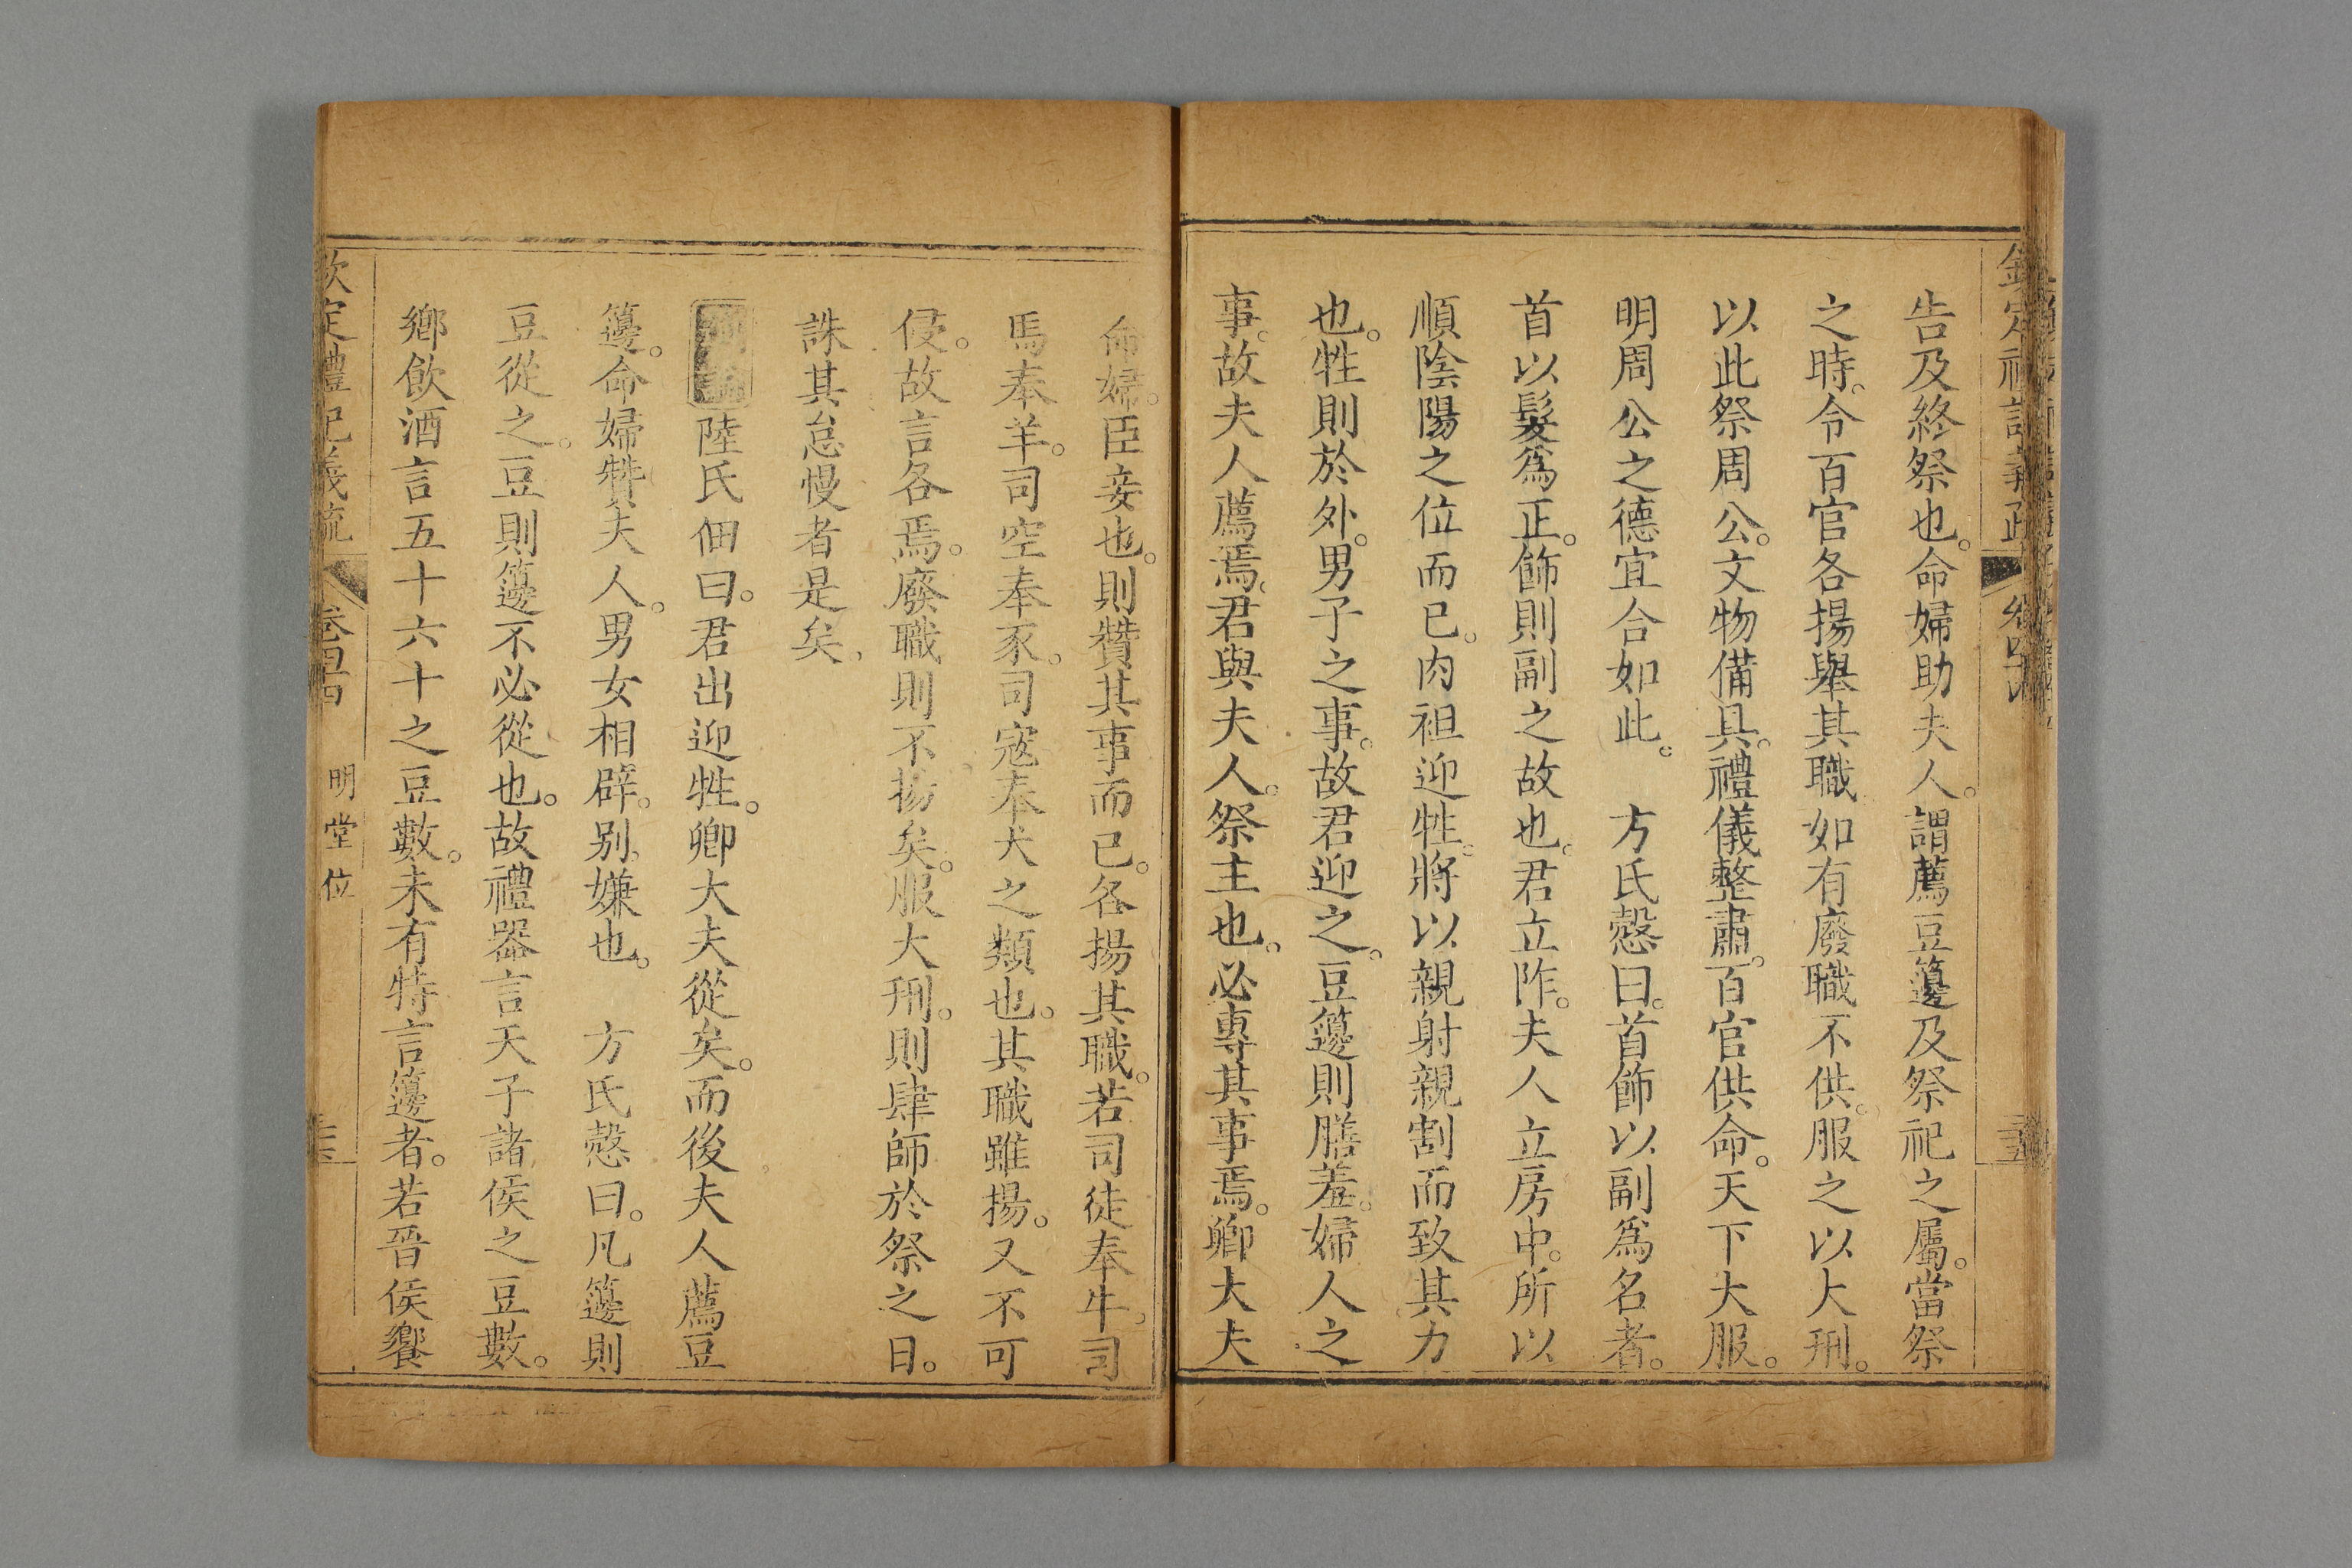 告及終祭也。命婦助夫人。謂薦豆籩及祭祀之屬。當祭
之時。令百官各揚舉其職如有廢職不供。服之以大刑。
以此祭周公。文物備具。禮儀整肅。百官供命。天下大服。
明周公之德宜合如此。　方氏慤曰。首飾以副爲名者。
首以髮爲正。飾則副之故也。君立阼。夫人立房中。所以
順陰陽之位而已。肉袒迎牲。將以親射親割而致其力
也。牲則於外。男子之事。故君迎之。豆籩則膳羞。婦人之
事。故夫人薦焉。君與夫人。祭主也。必專其事焉。卿大夫
命婦。臣妾也。則贊其事而已。各揚其職。若司徒奉牛。司
馬奉羊。司空奉豕。司寇奉犬之類也。其職雖揚。又不可
侵。故言各焉。廢職則不揚矣。服大刑。則肆師於祭之日。
誅其怠慢者是矣。
陸氏佃曰。君出迎牲。卿大夫從矣。而後夫人薦豆
籩。命婦贊夫人。男女相辟。別嫌也。　方氏慤曰。凡籩則
豆從之。豆則籩不必從也。故禮器言天子諸侯之豆數。
鄉飲酒言五十六十之豆數。未有特言籩者。若晉侯饗
欽定禮記義疏　卷四十四　明堂位